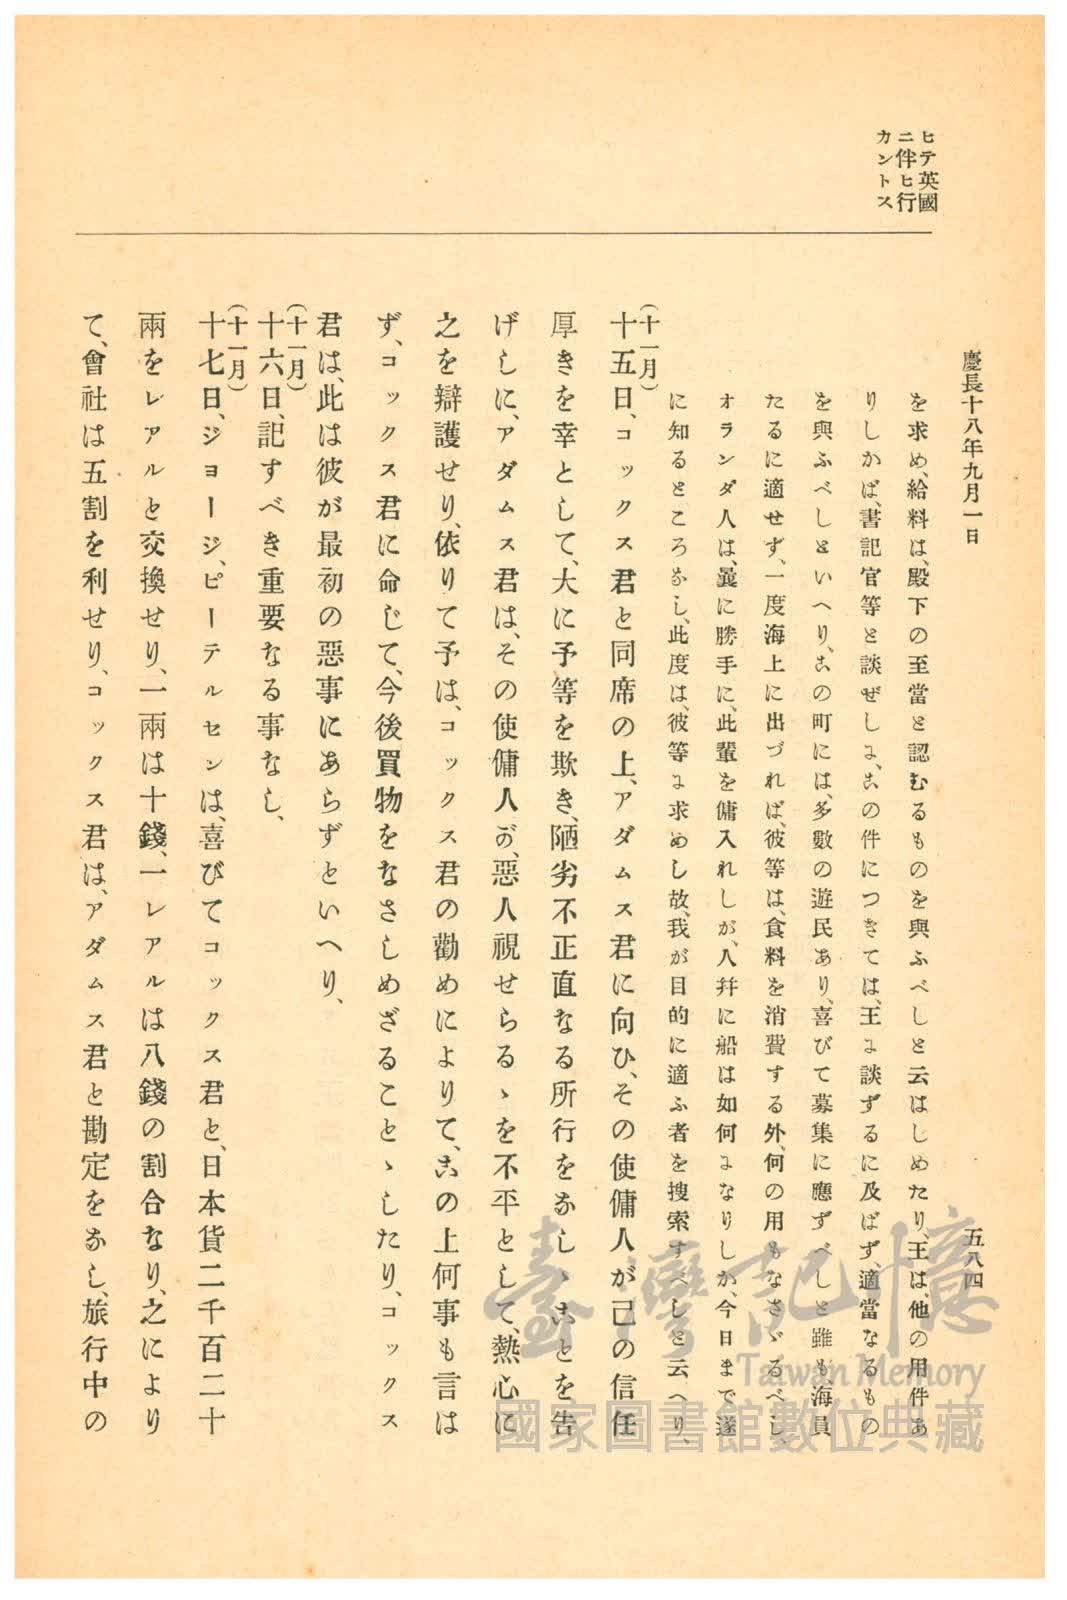 ヒテ英國
ニ伴ヒ行
カントス
慶長十八年九月一日
五八四
を求め、給料は、殿下の至當と認むるものを與ふべしと云はしめたり、王は、他の用件あ
りしかば、書記官等と談ぜしに、この件につきては、王に談ずるに及ばず、適當なるもの
を與ふべしといへり、この町には、多數の遊民あり、喜びて募集に應ずべしと雖も、海員
たるに適せず、一度海上に出づれば、彼等は、食料を消費する外、何の用もなさゞるべし、
オランダ人は、曩に勝手に、此輩を傭入れしが、人幷に船は如何になりしか、今日まで遂
に知るところなし、此度は、彼等に求めし故、我が目的に適ふ者を捜索すべしと云へり、
(十一月)
十五日、コックス君と同席の上、アダムス君に向ひ、その使傭人が己の信任
厚きを幸として、大に予等を欺き、陋劣不正直なる所行をなしゝことを告
げしに、アダムス君は、その使傭人が、惡人視せらるゝを不平として、熱心に
之を辯護せり、依りて予は、コックス君の勸めによりて、この上何事も言は
ず、コックス君に命じて、今後買物をなさしめざることゝしたり、コックス
君は、此は彼が最初の惡事にあらずといへり、
(十一月)
十六日、記すべき重要なる事なし、
(十一月)
十七日、ジョージ、ピーテルセンは、喜びてコックス君と、日本貨二千百二十
兩をレアルと交換せり、一兩は十錢、一レアルは八錢の割合なり、之により
て、會社は五割を利せり、コックス君は、アダムス君と勘定をなし、旅行中の
臺灣記憶
Taiwan Memory
國家圖書館數位典藏